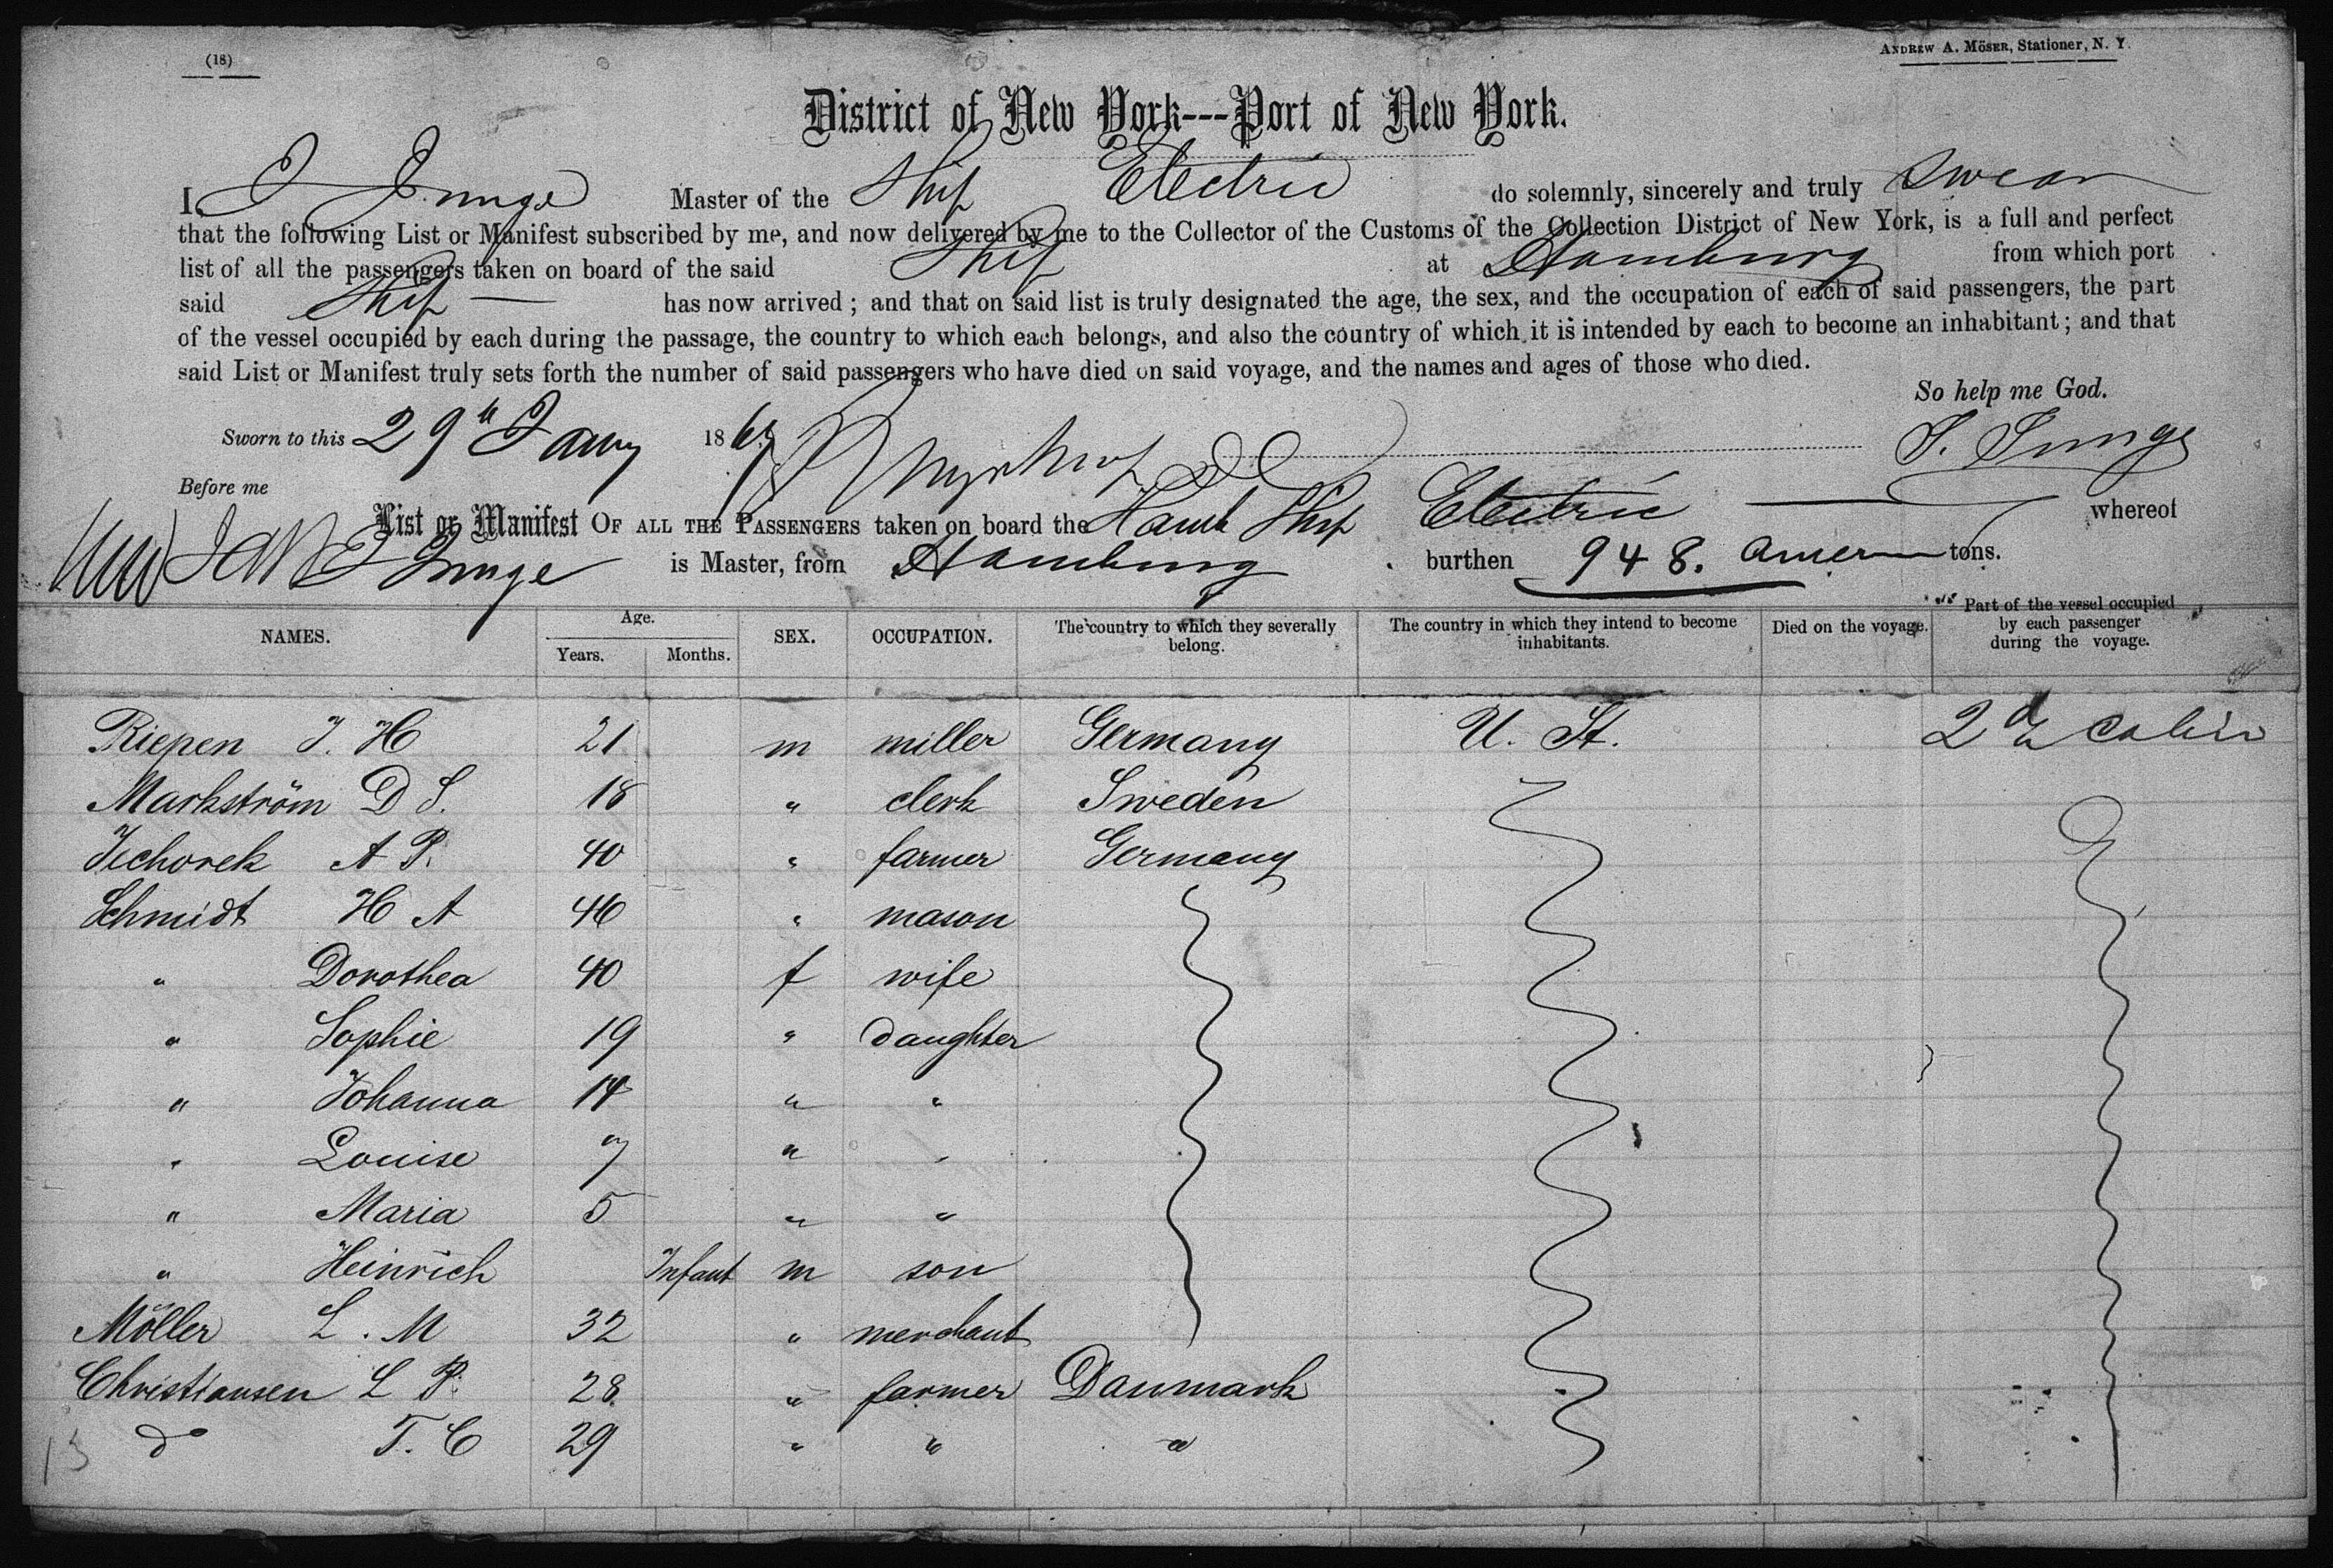 (18)
ANDREW A. MÖSER, Stationer, N. Y.
District of New York---Port of New York.
I, J Junge Master of the Ship Electric do solemnly, sincerely and truly swear
that the following List or Manifest subscribed by me, and now delivered by me to the Collector of the Customs of the Collection District of New York, is a full and perfect
list of all the passengers taken on board of the said Ship at Hamburg from which port
said Ship has now arrived; and that on said list is truly designated the age, the sex, and the occupation of each of said passengers, the part
of the vessel occupied by each during the passage, the country to which each belongs, and also the country of which it is intended by each to become an inhabitant; and that
said List or Manifest truly sets forth the number of said passengers who have died on said voyage, and the names and ages of those who died.
So help me God.
Sworn to this 29th Jany 1867 J. Junge
Before me
List or Manifest OF ALL THE PASSENGERS taken on board the Hamb Ship Electric whereof
Junge is Master, from Hamburg burthen 948. Amer tons.
NAMES. Age. Years. Months. SEX. OCCUPATION. The country to which they severally belong. The country in which they intend to become inhabitants. Died on the voyage. Part of the vessel occupied by each passenger during the voyage.
Riepen J. H 21 m miller Germany U. St. 2d Cabin
Markström D S. 18 " clerk Sweden
A P. 40 " farmer Germany
Schmidt H A 46 " mason
" Dorothea 40 f wife
" Sophie 19 " daughter
" Johanna 14 " "
" Louise 7 " "
" Maria 5 " "
" Heinrich Infant m son
Möller L. M 32 " merchant
Christiansen L P. 28 " farmer Danmark
do T. C 29 " " "
13